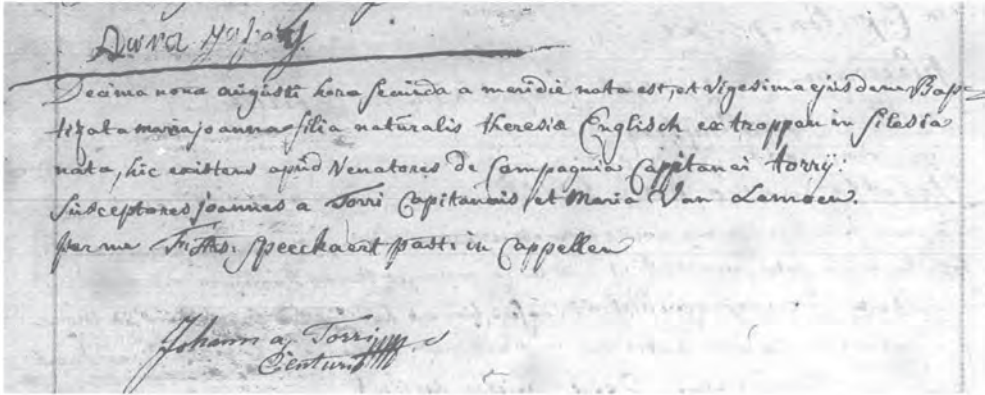 Decima nona augusti hora secunda a meridie nata est, et vigesima ejusdem Bap=
tizata maria joanna filia naturalis theresiæ Englisch ex troppau in silesia
nata, hic existens apud Venatores de Compagnia Capitanei torrij.
susceptores joannes a Torri Capitaneus et Maria Van Lamoen.
per me speeckaert past: in Cappellen
Johann a Torri
Centurio